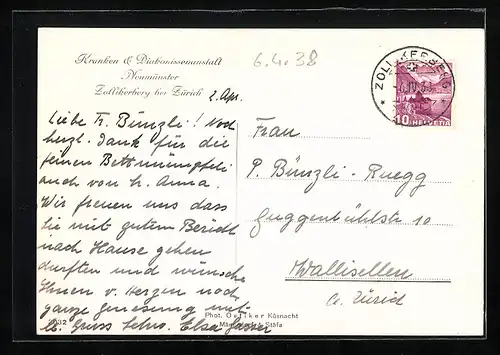 Kranken & Diakonissenanstalt
Neumünster
Zollikerberg bei Zürich
2. Apr.
6.4.38
ZOLLIKERBERG
10 HELVETIA
Liebe Fr. Bünzli! Noch
herzl. Dank für die
feinen
auch von Fr. Anna.
Wir freuen uns dass
Sie mit gutem Bericht
nach Hause gehen
durften und wünsche
Ihnen v. Herzen noch
ganze Genesung mit
lb. Gruss Schw. Elsa
Frau
P. Bünzli - Ruegg
Guggenbühlstr 10
Wallisellen
Ct. Zürich
Phot. Oetiker Küsnacht
Männedorf Stäfa